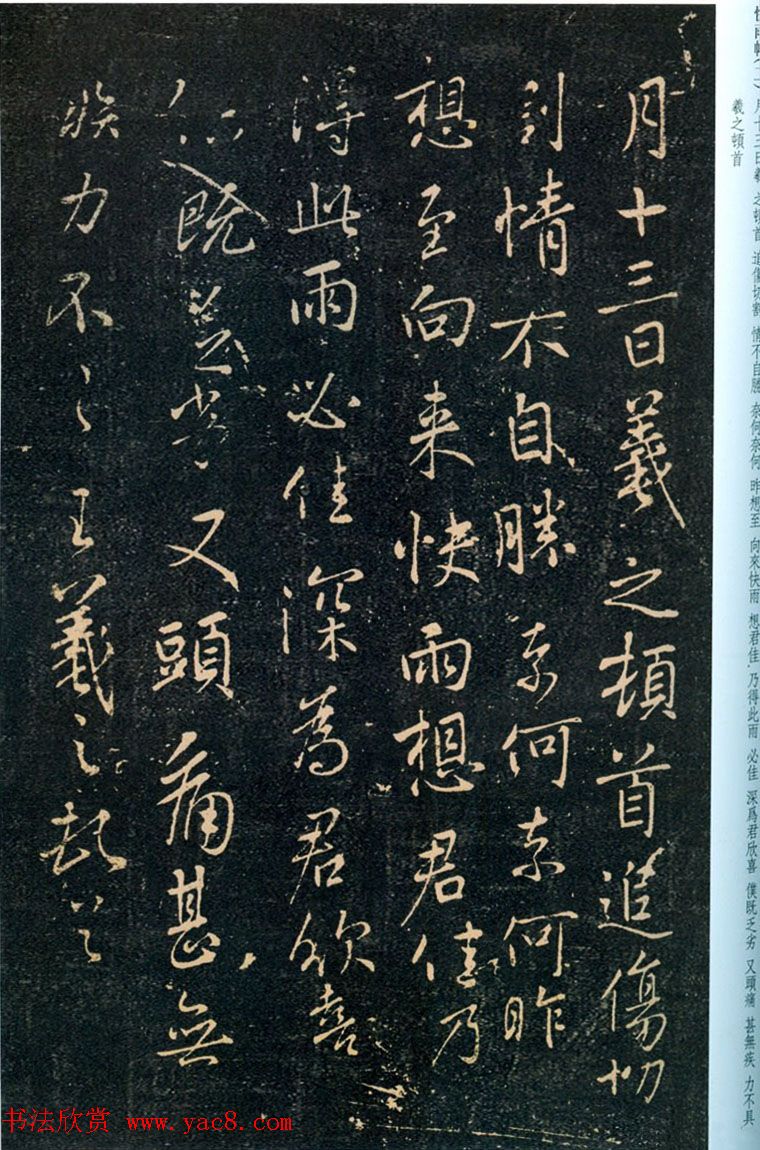 月十三日羲之頓首追傷切
割情不自勝奈何奈何昨
想至向来快雨想君佳乃
得此雨必佳深為君欣喜
僕既乏劣又頭痛甚無
疾力不具王羲之頓首
快雨帖(二) 月十三日羲之頓首 追傷切割 情不自勝 奈何奈何 昨想至 向來快雨 想君佳 乃得此雨 必佳 深爲君欣喜 僕既乏劣 又頭痛 甚無疾 力不具
羲之頓首
书法欣赏 www.yac8.com